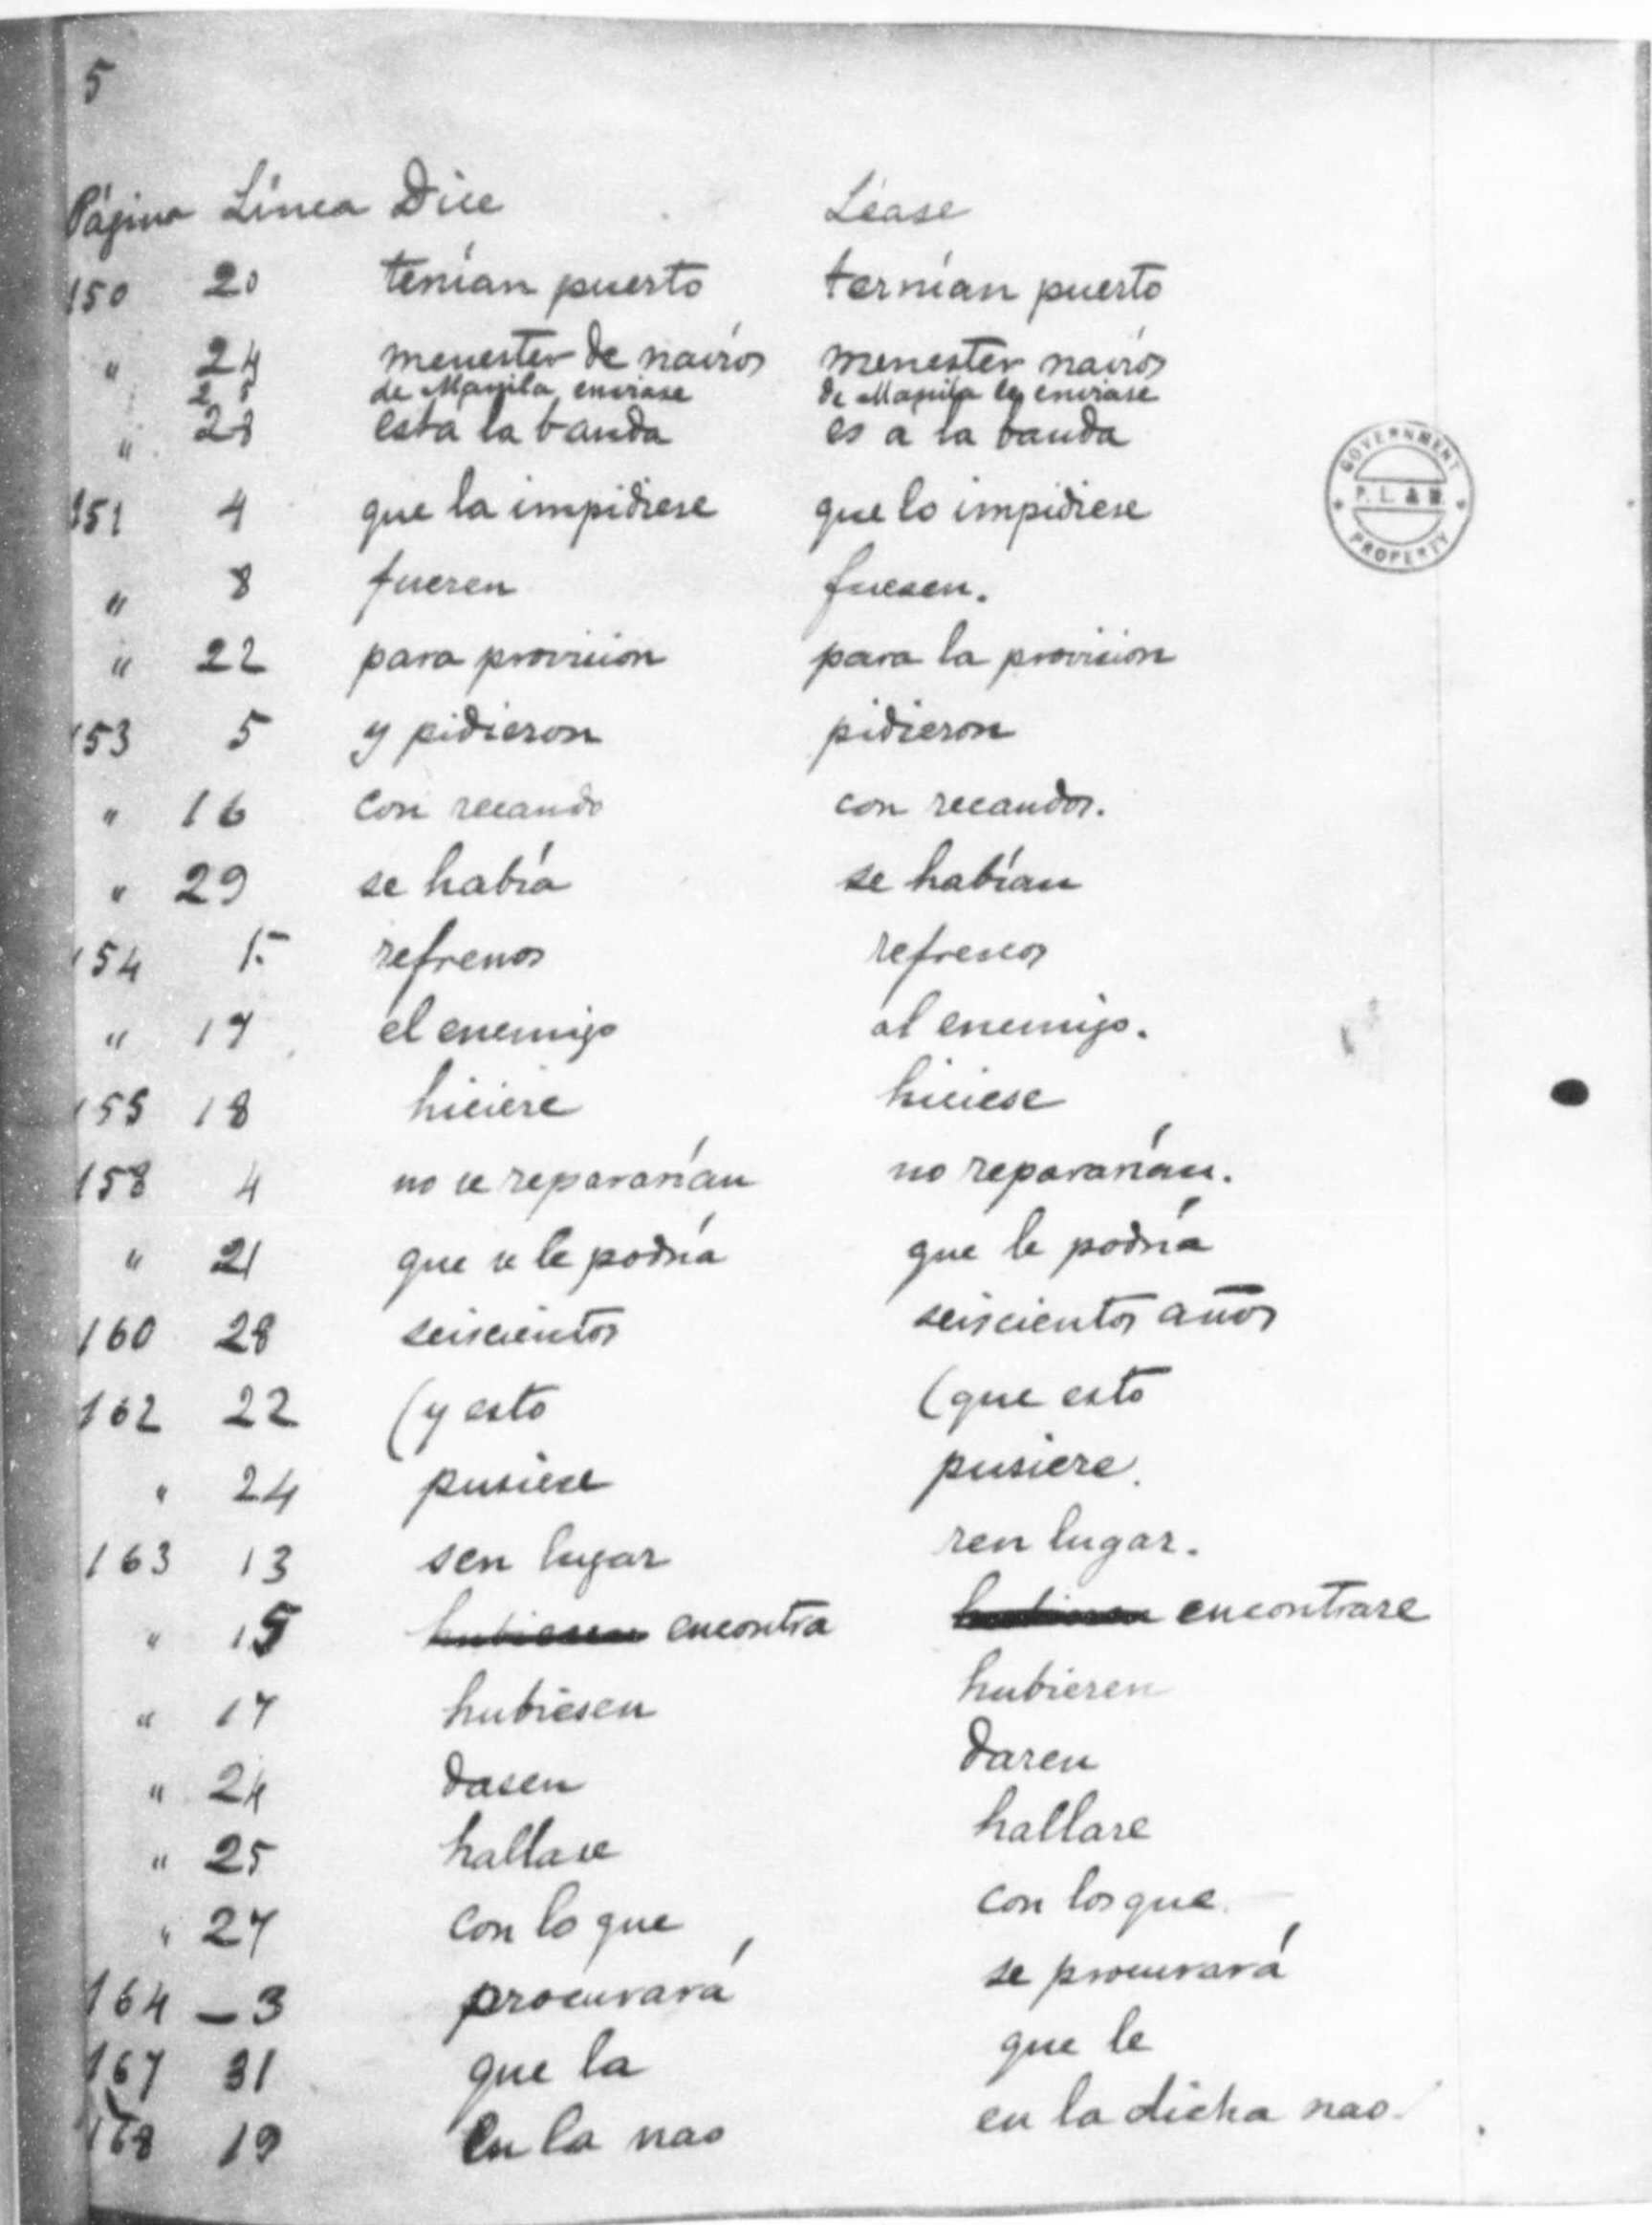 5
Página Línea Dice Léase
150 20 tenían puerto ternían puerto
" 24 menester de navíos menester navíos
" 25 de Manila enviase de Manila les enviase
" 28 esta la banda es a la banda
151 4 que la impidiese que lo impidiese
" 8 fueren fuesen.
" 22 para provision para la provision
153 5 y pidieron pidieron
" 16 con recaudo con recaudos.
" 29 se había se habían
154 1 refrenos refrescos
" 17 el enemigo al enemigo.
155 18 hiciere hiciese
158 4 no se repararían no repararían.
" 21 que se le podría que le podría
160 28 seiscientos seiscientos años
162 22 (y esto (que esto
" 24 pusiese pusiere.
163 13 sen lugar ren lugar.
" 15 encontra encontrare
" 17 hubiesen hubieren
" 24 dasen daren
" 25 hallase hallare
" 27 con lo que con los que
164 - 3 procurará se procurará
167 31 que la que le
168 19 En la nao en la dicha nao.
GOVERNMENT
P. L. & M.
PROPERTY